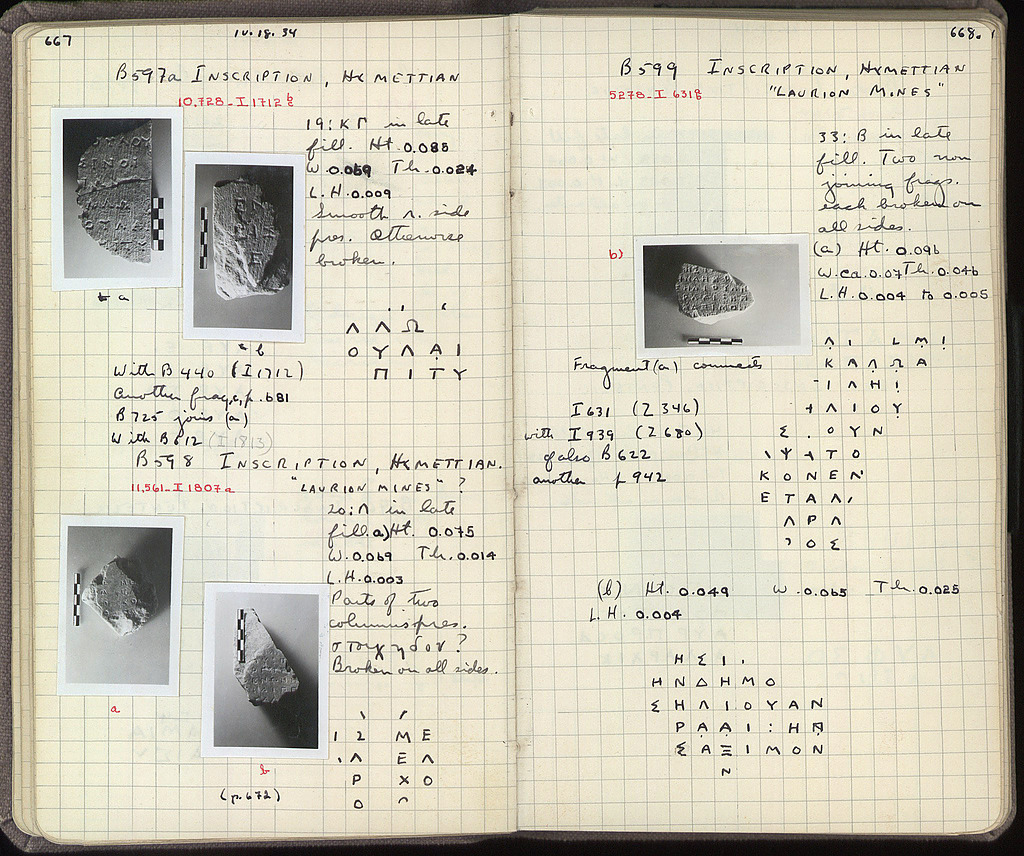 667
10.18.34
B597a INSCRIPTION, HYMETTIAN
10,728-I 1712 b
19: ΚΓ in late
fill. Ht. 0.085
W. 0.069 Th. 0.024
L.H. 0.009
Smooth r. side
pres. Otherwise
broken.
a
b
Λ Λ Ω
Ο Υ Λ Α Ι
Π Ι Τ Υ
With B 440 (I 1712)
Another frag, c, p. 681
B 725 joins (a)
With B 612 (I 1813)
B 598 INSCRIPTION, HYMETTIAN.
11,561-I 1807 a
"LAURION MINES" ?
20: Λ in late
fill. a) Ht. 0.075
W. 0.069 Th. 0.014
L.H. 0.003
Parts of two
columns pres.
στοιχηδον ?
Broken on all sides.
a
b
(p. 672)
Ι Σ Μ Ε
Λ Ε Λ
Ρ Χ Ο
Ο
668.
B 599 INSCRIPTION, HYMETTIAN
5278-I 631
"LAURION MINES"
33: B in late
fill. Two non
joining frags.
each broken on
all sides.
(a) Ht. 0.096
W. ca. 0.07 Th. 0.046
L.H. 0.004 to 0.005
b)
Fragment (a) connects
I 631 (Σ 346)
with I 939 (Σ 680)
cf also B 622
another p 942
Λ Ι Λ Μ Ι
Κ Α Λ Ω Α
Ι Λ Η Ι
Λ Ι Ο Υ
Σ . Ο Υ Ν
Ψ Τ Ο
Κ Ο Ν Ε Λ
Ε Τ Α Λ
Λ Ρ Λ
Ο Σ
(b) Ht. 0.049 W. 0.065 Th. 0.025
L.H. 0.004
Η Σ Ι
Η Ν Δ Η Μ Ο
Σ Η Λ Ι Ο Υ Α Ν
Ρ Α Α Ι : Η Π
Σ Α Ξ Ι Μ Ο Ν
Ν